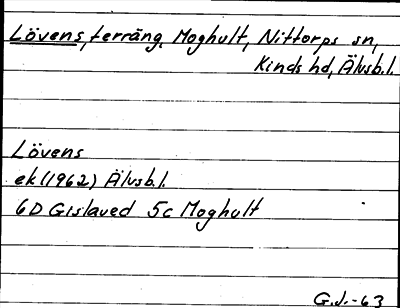 Lövens, terräng, Moghult, Nittorps sn,
Kinds hd, Älvsb.l.
Lövens
ek (1962) Älvsb.l.
6D Gislaved 5c Moghult
G.J.-63